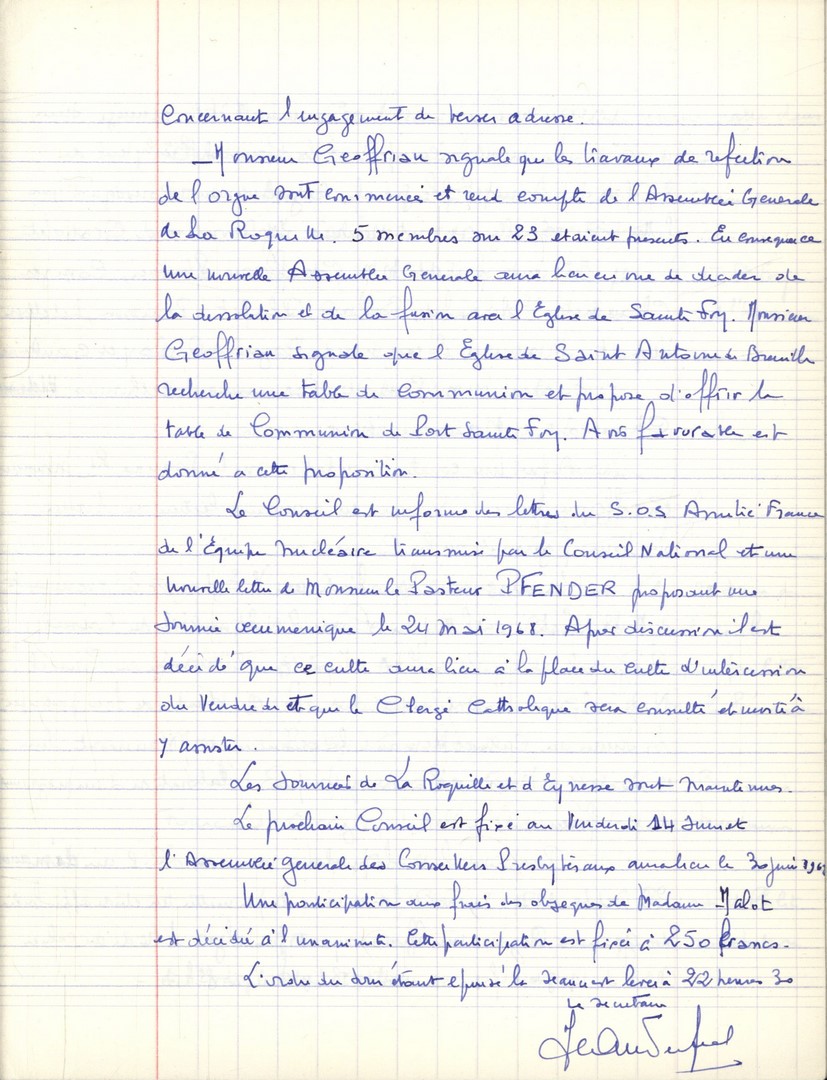 Concernant l'engagement de verser adresse.
_ Monsieur Geoffrian signale que les travaux de refection
de l'orgue sont commencés et rend compte de l'Assemblée Generale
de La Roquille. 5 membres sur 23 etaient presents. En consequence
une nouvelle Assemblée Generale aura lieu en vue de decider de
la dissolution et de la fusion avec l'Eglise de Sainte Foy. Monsieur
Geoffrian signale que l'Eglise de Saint Antoine de Breuilh
recherche une table de Communion et propose d'offrir la
table de Communion de Port Sainte Foy. Avis favorable est
donné a cette proposition.
Le Conseil est informé des lettres du S.O.S Amitié France
de l'Équipe nucléaire transmise par le Conseil National et une
nouvelle lettre de Monsieur le Pasteur PFENDER proposant une
Journée oecumenique le 24 Mai 1968. Apres discussion il est
décidé que ce culte aura lieu à la place du culte d'intercession
du Vendredi et que le Clergé Catholique sera consulté et invité à
y assister.
Les Journées de La Roquille et d'Eynesse sont Maintenues.
Le prochain Conseil est fixé au Vendredi 14 Juin et
l'Assemblée generale des Conseillers Presbytéraux aura lieu le 30 juin 1968
Une participation aux frais des obseques de Madame Malot
est décidée à l'unanimité. Cette participation est fixée à 250 francs.
L'ordre du jour étant epuisé la seance est levée à 22 heures 30
Le secretaire